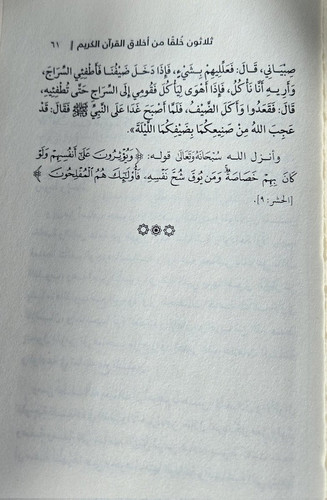 ثلاثون خلقًا من أخلاق القرآن الكريم | ٦١
صِبْيَانِي، قَالَ: فَعَلِّلِيهِمْ بِشَيْءٍ، فَإِذَا دَخَلَ ضَيْفُنَا فَأَطْفِئِي السِّرَاجَ،
وَأَرِيهِ أَنَّا نَأْكُلُ، فَإِذَا أَهْوَى لِيَأْكُلَ فَقُومِي إِلَى السِّرَاجِ حَتَّى تُطْفِئِيهِ،
قَالَ: فَقَعَدُوا وَأَكَلَ الضَّيْفُ، فَلَمَّا أَصْبَحَ غَدَا عَلَى النَّبِيِّ ﷺ فَقَالَ: قَدْ
عَجِبَ اللهُ مِنْ صَنِيعِكُمَا بِضَيْفِكُمَا اللَّيْلَةَ».
وأنزل الله سُبْحَانَهُ وَتَعَالَى قوله: ﴿وَيُؤْثِرُونَ عَلَىٰ أَنفُسِهِمْ وَلَوْ
كَانَ بِهِمْ خَصَاصَةٌ وَمَن يُوقَ شُحَّ نَفْسِهِ فَأُوْلَٰٓئِكَ هُمُ الْمُفْلِحُونَ﴾
[الحشر: ٩].